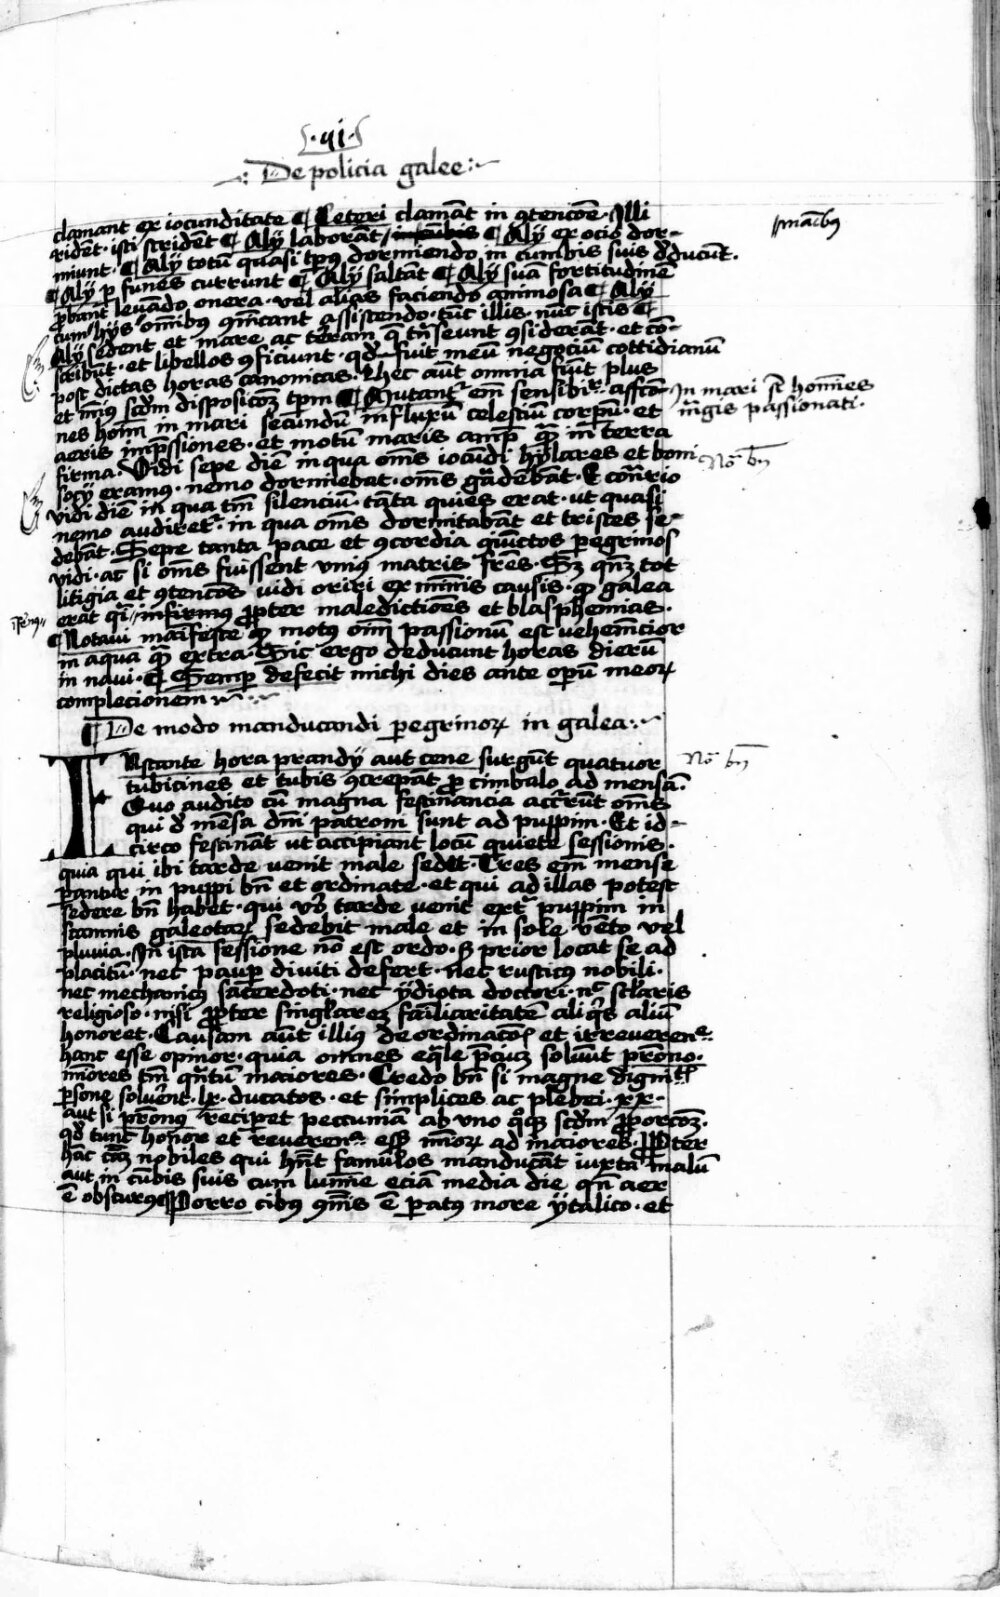 ·qi·
De policia galee
clamant ex iocunditate ¶ Ceteri clamāt in 9tencōe · Illi
rident · isti stridēt ¶ Alÿ laborāt / manibus ¶ Alÿ ex ocio dor-
miunt · ¶ Alÿ totū quasi tp9 dormiendo in cumbis suis dducūt ·
¶ Alÿ p funes currunt ¶ Alÿ saltāt ¶ Alÿ sua fortitudinē
pbant levādo onera · vel alias faciendo animosa ¶ Alÿ
cum hÿs omībus assistendo · tūc illis · nūc istis ¶
Alÿ sedent et mare ac terām q̄ tn̄seunt 9siderāt · et cō-
scribūt · et libellos 9ficiunt · qd fuit meū negociū cottidianū
post dictas horas canonicas · Hec aūt omnia fiūt plus
et min9 scdm disposicoēz tpm ¶ Mutant em sensibir affctio-
nes hoīm in mari secundū influxū celestiū corpm · et
aeris imp̄ssiones · et motū maris amp q̄ in terra
firma · Vidi sepe diē in qua om̄s iocūdi hÿlares et boni
socÿ eramus · nemo dormiebat · om̄s gādebāt · E cōtrio
vidi diē in qua tm̄ silenciū · tāta quies erat · ut quasi
nemo audiret · in qua om̄s dormitabāt et tristes se-
debāt · Sepe tanta pace et 9cordia iūctos pegrinos
vidi · ac si om̄s fuissent vni9 matris frēs · Sz qn̄z tot
litigia et 9tencōes vidi oriri ex mīmis causis · qp galea
erat qi infirmus ppter maledictiōes et blasphemias ·
¶ Notaui maifeste qp mot9 oīm passionū est vehemēcior
in aqua q̄ extra · Sic ergo deducunt horas dierū
in navi · ¶ Semp defecit michi dies ante opū meoꝝ
complecionem
¶ De modo manducandi pegrinoꝝ in galea ·
INstante hora prandÿ aut cene surgūt quatuor
tubicines et tubis 9crepāt p cimbalo ad mensā ·
Quo audito cū magna festināncia accrrūt om̄s
qui d mēsa dn̄i patroni sunt ad puppim · Et id-
circo festināt ut accipiant locū quiete sessionis ·
quia qui ibi tarde venit male sedet · Tres em̄ mense
pantur in puppi bn̄ et ordinate · et qui ad illas potest
sedere bn̄ habet · qui vo tarde venit ext puppim in
scamnis galeotaꝝ sedebit male et in sole vēto vel
pluvia · In ista sessione nō est ordo · S prior locat se ad
placitū · nec paup diviti defert · nec rustic9 nobili ·
nec mechanic9 sacerdoti · nec ÿdiota doctori · nc sclaris
religioso · nisi ppter singlarez familiaritatē aliqs aliū
honoret · Causam aūt illius deordinacō et irreveren
hanc esse opinor · quia omnes eqale pciuz solvūt prōno ·
mīores tm̄ qntū maiores · Credo bn̄ si magne dignit
psone solvēnt · lx · ducatos · et simplices ac plebei · xx-
aut si pronus reciperet peccuniā ab uno qqz scdm pporcoēz ·
qd tunc honor et reveren eēt mīoꝝ ad maiores · Ppter
hāc cāz nobiles qui hn̄t famulos manducāt iuxta malū
aut in cūbis suis cum lumie eciā media die qn̄ aer
ē obscurus ¶ Porro cibus ē pat9 more ÿtalico · et
manib9
In mari st homīes
magis passionati ·
Nō bn̄
Nō bn̄